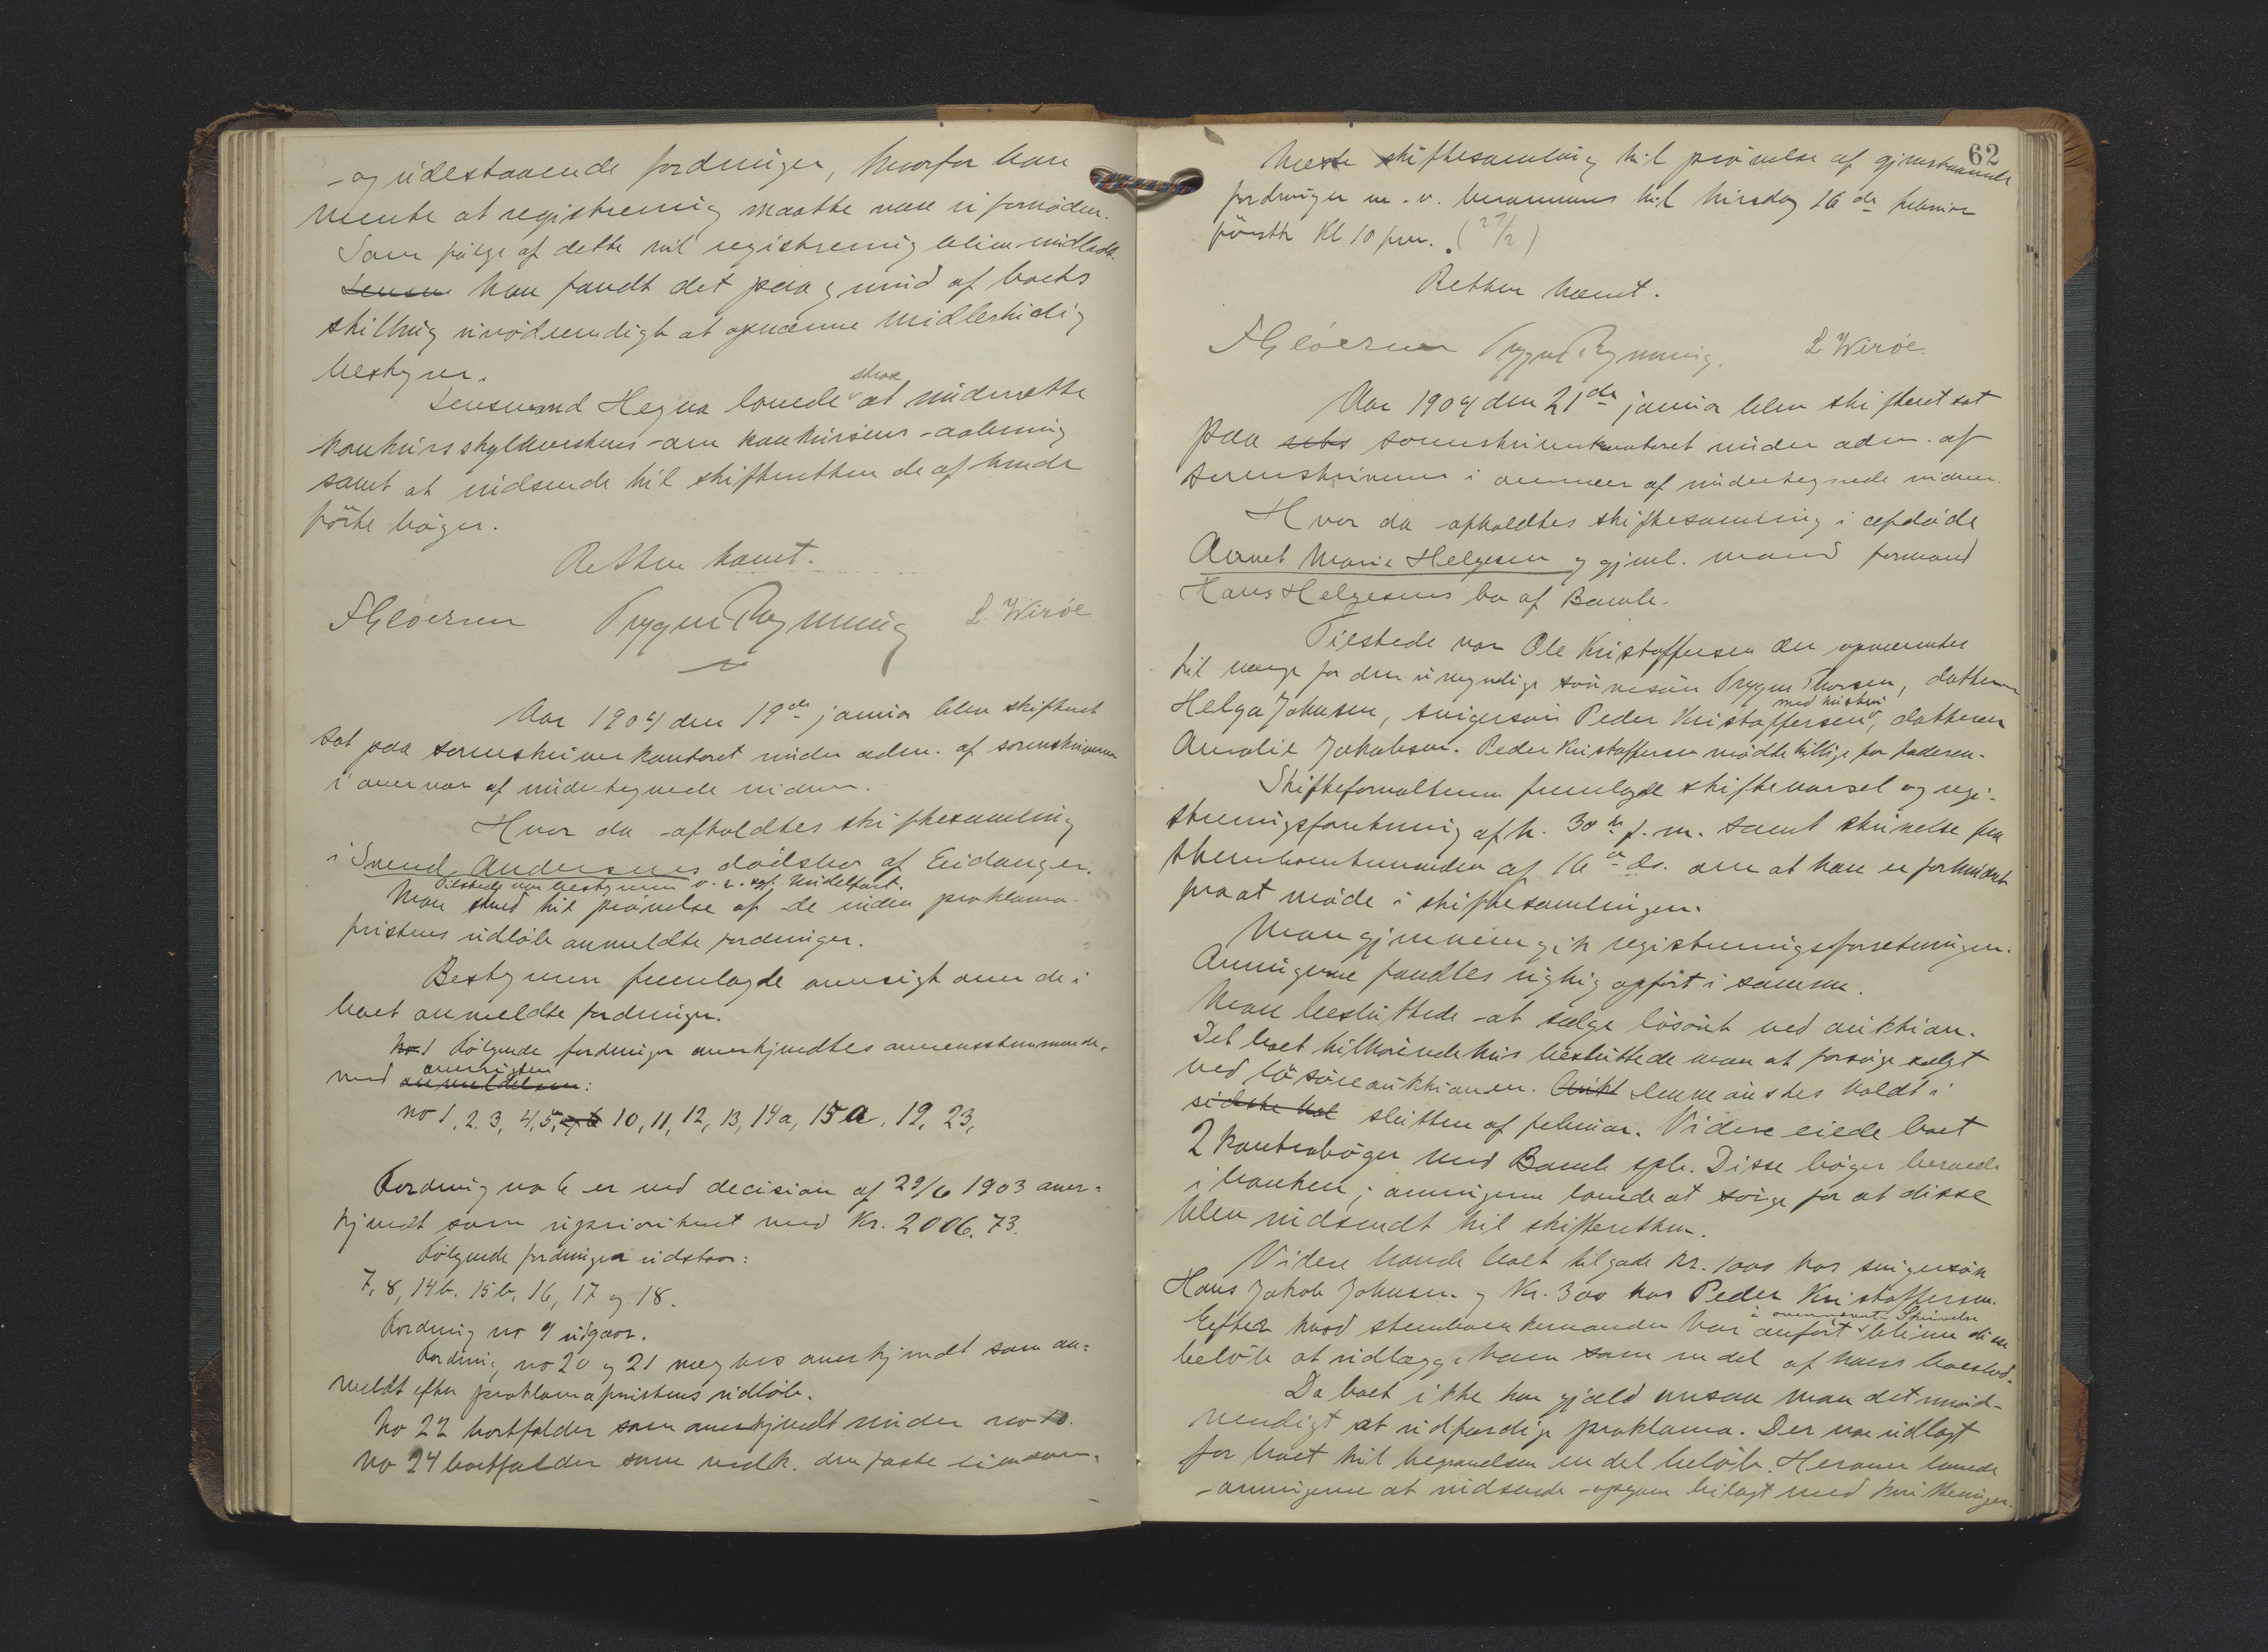 og udestaaende fordringer, hvorfor han
mente at registrering maatte være ufornøden.
Som følge af dette vil registrering blive undladt.
Lensm Man fandt det paa grund af boets
stilling unødvendigt at opnævne midlertidig
bestyrer.
strax
Lensmand Hegna lovede at underrette
konkursskyldnerskens om konkursens aabning
samt at indsende til skifteretten de af hende
førte bøger.
Retten hævet.
FGløersen Trygve Rynning L. Wirøe
Aar 1904 den 19de januar blev skifteret
sat paa sorenskriverkontoret under adm. af sorenskriveren
i overvær af undertegnede vidner.
Hvor da afholdtes skiftesamling
i Svend Andersens dødsbo af Eidanger.
Tilstede var bestyreren o.r.sgf. Midelfart.
Man skred til prøvelse af de inden proklama-
fristens udløb anmeldte fordringer.
Bestyreren fremlagde oversigt over de i
boet anmeldte fordringer.
No 1 Følgende fordringer anerkjendtes overensstemmende
oversigten
med anmeldelsen:
no 1, 2, 3, 4, 5, 6 10, 11, 12, 13, 14a, 15a, 19, 23,
Fordring no 6 er ved decision af 29/6 1903 aner-
kjendt som uprioritert med Kr. 2006.73.
Følgende fordringer udstaar:
7, 8, 14b. 15b, 16, 17 og 18.
Fordring no 9 udgaar.
Fordring no 20 og 21 nægtes anerkjendt som an-
meldt efter proklamafristens udløb.
No 22 bortfalder som anerkjendt under no 10.
No 24 bortfalder som vedk. den faste eiendom.
62
Næste skiftesamling til prøvelse af gjenstaaende
fordringer m.v. berammes til tirsdag 16de februar
førstk. Kl 10 fm. (27/2)
Retten hævet.
FGløersen Trygve Rynning. L Wirøe.
Aar 1904 den 21de januar blev skifteret sat
paa sorenskriverkontoret under adm. af
sorenskriveren i overvær af undertegnede vidner.
Hvor da afholdtes skiftesamling i afdøde
Marie Helgesen og gjenl. mand formand
Hans Helgesens bo af Bamble.
Tilstede var Ole Kristoffersen der opnævntes
til værge for den umyndige sønnesøn Trygve Thorsen, datteren
med hustru
Helga Johnsen, svigersøn Peder Kristoffersen, datteren
Amalie Jakobsen. Peder Kristoffersen mødte tillige for faderen.
Skifteforvalteren fremlagde skiftevarsel og regi-
streringsforretning af h. 30te f.m. samt skrivelse fra
stervboenkemanden af 16de ds. om at han er forhindret
fra at møde i skiftesamlingen.
Man gjennemgik registreringsforretningen.
Arvingerne fandtes rigtig opført i samme.
Man besluttede at sælge løsøret ved auktion.
Det boet tilhørende hus besluttede man at forsøge solgt
ved løsøreauktionen. Aukt Denne ønskes holdt i
sidste hal slutten af februar. Videre eiede boet
2 kontrabøger med Bamble spb. Disse bøger beroede
i banken; arvingerne lovede at sørge for at disse
blev indsendt til skifteretten.
Videre havde boet tilgode kr. 1000 hos svigersøn
Hans Jakob Johnsen og Kr. 300 hos Peder Kristoffersen.
i ovennævnte Skrivelse
Efter hvad stervboenkemanden har anført blive disse
beløb at udlægge ham som en del af hans boeslod.
Da boet ikke har gjæld ansaa man det unød-
vendigt at udfærdige proklama. Der var udlagt
for boet til begravelsen en del beløb. Herover lovede
arvingerne at indsende opgave bilagt med kvitteringer.